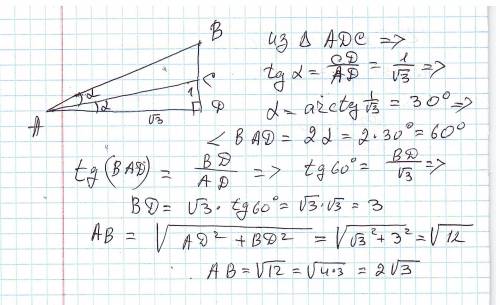 B
C
1
D
√3
A
α
α
из Δ ADC =>
tg α = CD/AD = 1/√3 =>
α = arctg 1/√3 = 30° =>
< BAD = 2α = 2·30° = 60°
tg(BAD) = BD/AD => tg 60° = BD/√3 =>
BD = √3 · tg 60° = √3·√3 = 3
AB = √(AD² + BD²) = √(√3² + 3²) = √12
AB = √12 = √4·3 = 2√3